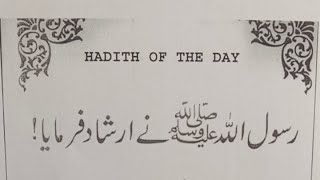 HADITH OF THE DAY
رسول اللہ ﷺ نے ارشاد فرمایا!